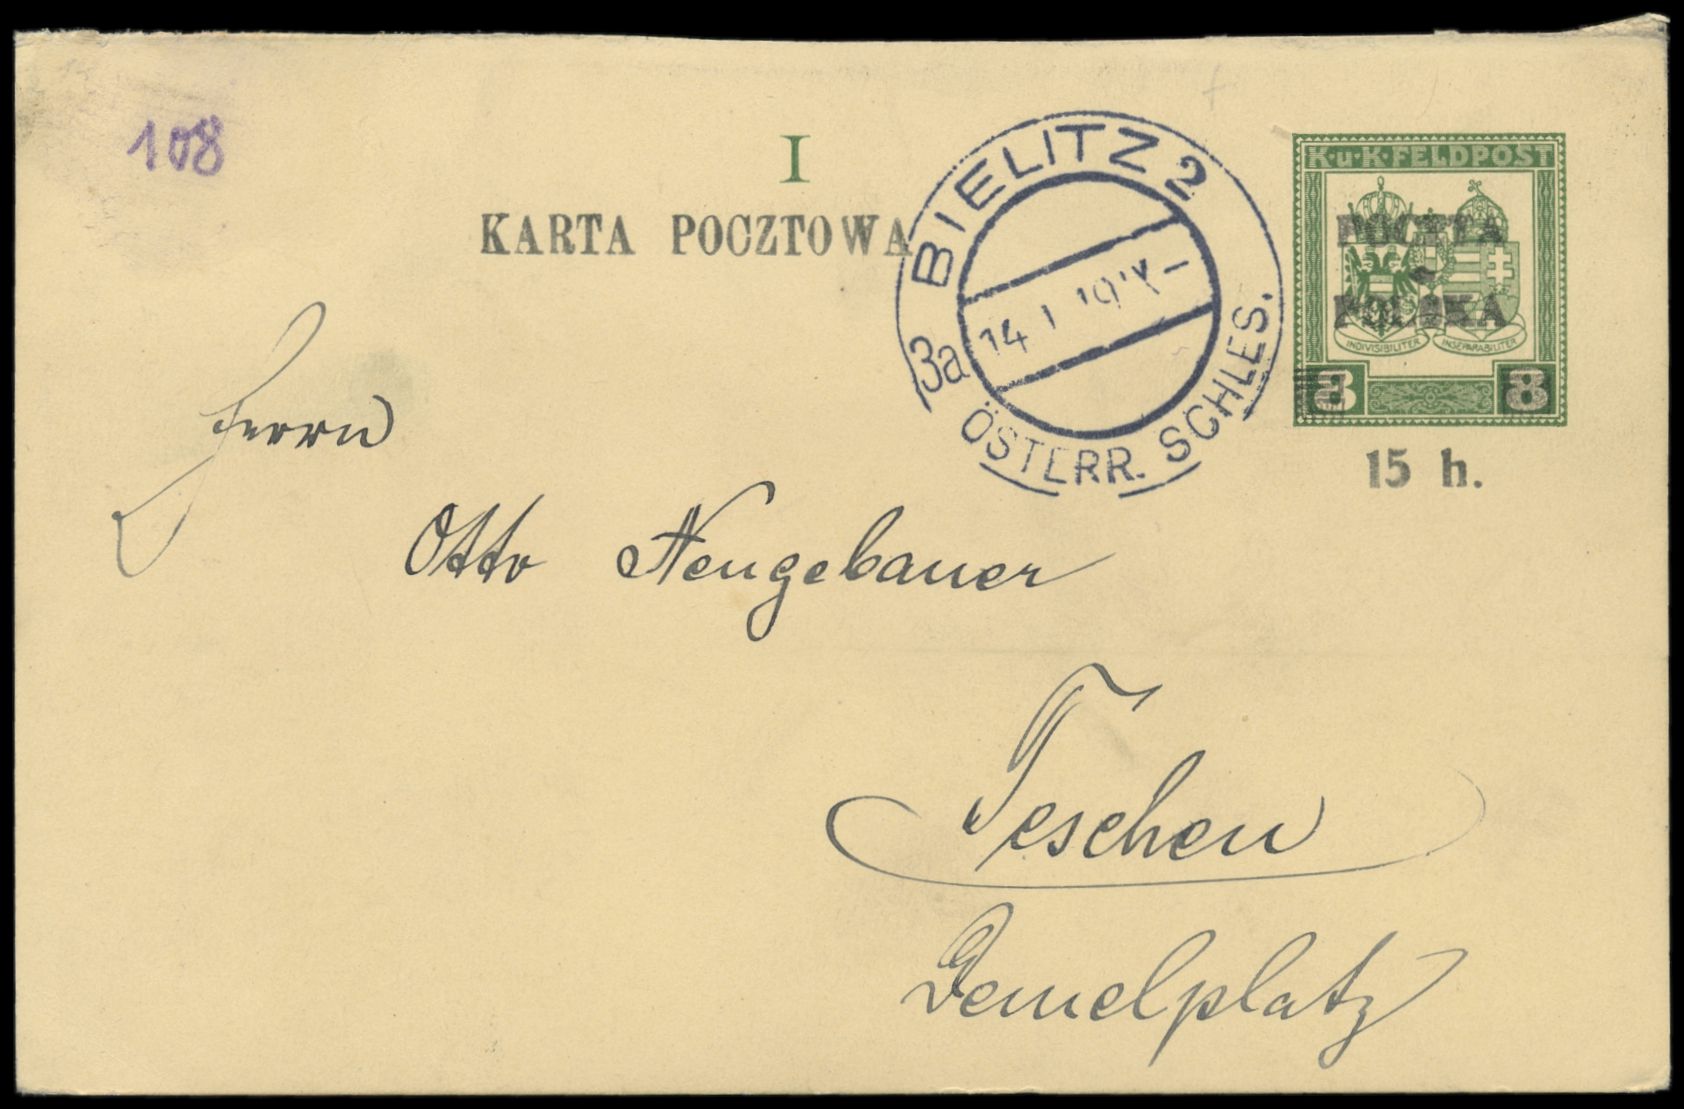 108
I
KARTA POCZTOWA
BIELITZ 2
14 I 19
3a
ÖSTERR. SCHLES.
K·u·K·FELDPOST
POCZTA
POLSKA
INDIVISIBILITER INSEPARABILITER
8 8
15 h.
Herrn
Otto Neugebauer
Teschen
Demelplatz